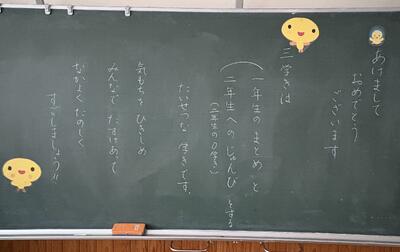 あけまして
おめでとう
ございます
三学きは
一年生のまとめと
二年生へのじゅんび をする
(二年生の0学き)
たいせつな 学きです。
気もちを ひきしめ
みんなで たすけあって
なかよく たのしく
すごしましょう!!